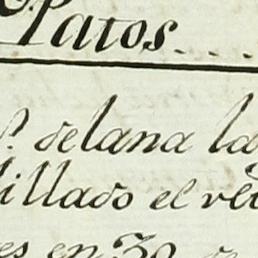 Patos....
P. de lana la
illado el ve
es en 30. de